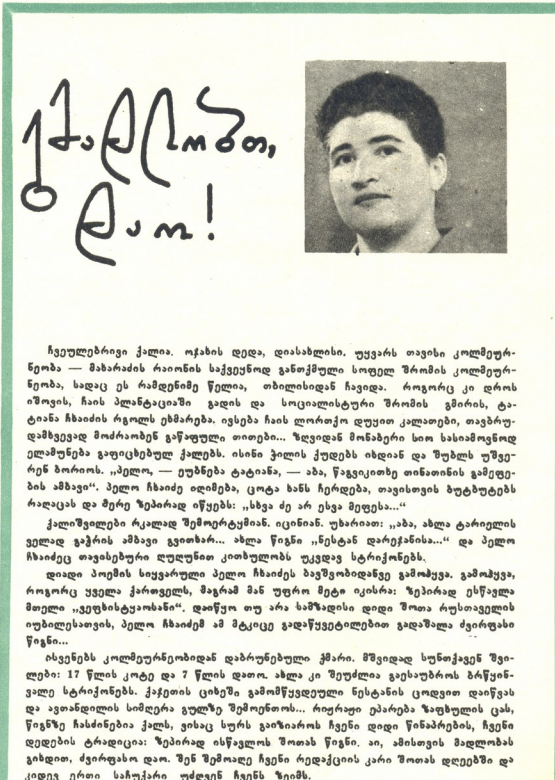 გმადლობთ,
დაო!
ჩვეულებრივი ქალია. ოჯახის დედა, დიასახლისი. უყვარს თავისი კოლმეურ-
ნეობა — მახარაძის რაიონის საქვეყნოდ განთქმული სოფელ შრომის კოლმეურ-
ნეობა, სადაც ეს რამდენიმე წელია, თბილისიდან ჩავიდა. როგორც კი დროს
იშოვის, ჩაის პლანტაციაში გადის და სოციალისტური შრომის გმირის, ტა-
ტიანა ჩხაიძის რგოლს ეხმარება. ივსება ჩაის ლორთქო დუყით კალათები, თავბრუ-
დამხვევად მოძრაობენ გაწაფული თითები... ზღვიდან მონაბერი სიო სასიამოვნოდ
ელამუნება გაფიცხებულ ქალებს. ისინი ჭილის ქუდებს იხდიან და შუბლს უშვე-
რენ ბორიოს. „პელო, — ეუბნება ტატიანა, — აბა, წაგვიკითხე თინათინის გამეფე-
ბის ამბავი“. პელო ჩხაიძე იღიმება, ცოტა ხანს ჩერდება, თავისთვის ბუტბუტებს
რაღაცას და მერე ზეპირად იწყებს: „სხვა ძე არ ესვა მეფესა...“
ქალიშვილები რკალად შემოერტყმიან. იცინიან. უხარიათ: „აბა, ახლა ტარიელის
ველად გაჭრის ამბავი გვითხარ... ახლა წიგნი „ნესტან დარეჯანისა...“ და პელო
ჩხაიძეც თავისებური ღუღუნით კითხულობს უკვდავ სტრიქონებს.
დიადი პოემის სიყვარული პელო ჩხაიძეს ბავშვობიდანვე გამოჰყვა. გამოჰყვა,
როგორც ყველა ქართველს, მაგრამ მან უფრო მეტი იკისრა: ზეპირად ესწავლა
მთელი „ვეფხისტყაოსანი“. დაიწყო თუ არა სამზადისი დიდი შოთა რუსთაველის
იუბილესათვის, პელო ჩხაიძემ ამ მტკიცე გადაწყვეტილებით გადაშალა ძვირფასი
წიგნი...
ისვენებს კოლმეურნეობიდან დაბრუნებული ქმარი. მშვიდად სუნთქავენ შვი-
ლები: 17 წლის კოტე და 7 წლის დათო. ახლა კი შეუძლია გაესაუბროს ბრწყინ-
ვალე სტრიქონებს. ქაჯეთის ციხეში გამომწყვდეული ნესტანის ცოდვით დაიწვას
და ავთანდილის სიმღერა გულზე შემოენთოს... რიჟრაჟი ეპარება ზაფხულის ცას,
წიგნზე ჩასძინებია ქალს, ვისაც სურს გაიზიაროს ჩვენი დიდი წინაპრების, ჩვენი
დედების ტრადიცია: ზეპირად ისწავლოს შოთას წიგნი. აი, ამისთვის მადლობას
გიხდით, ძვირფასო დაო. შენ შემოაღე ჩვენი რედაქციის კარი შოთას დღეებში და
კიდევ ერთი საჩუქარი უძღვენ ჩვენს ზეიმს.